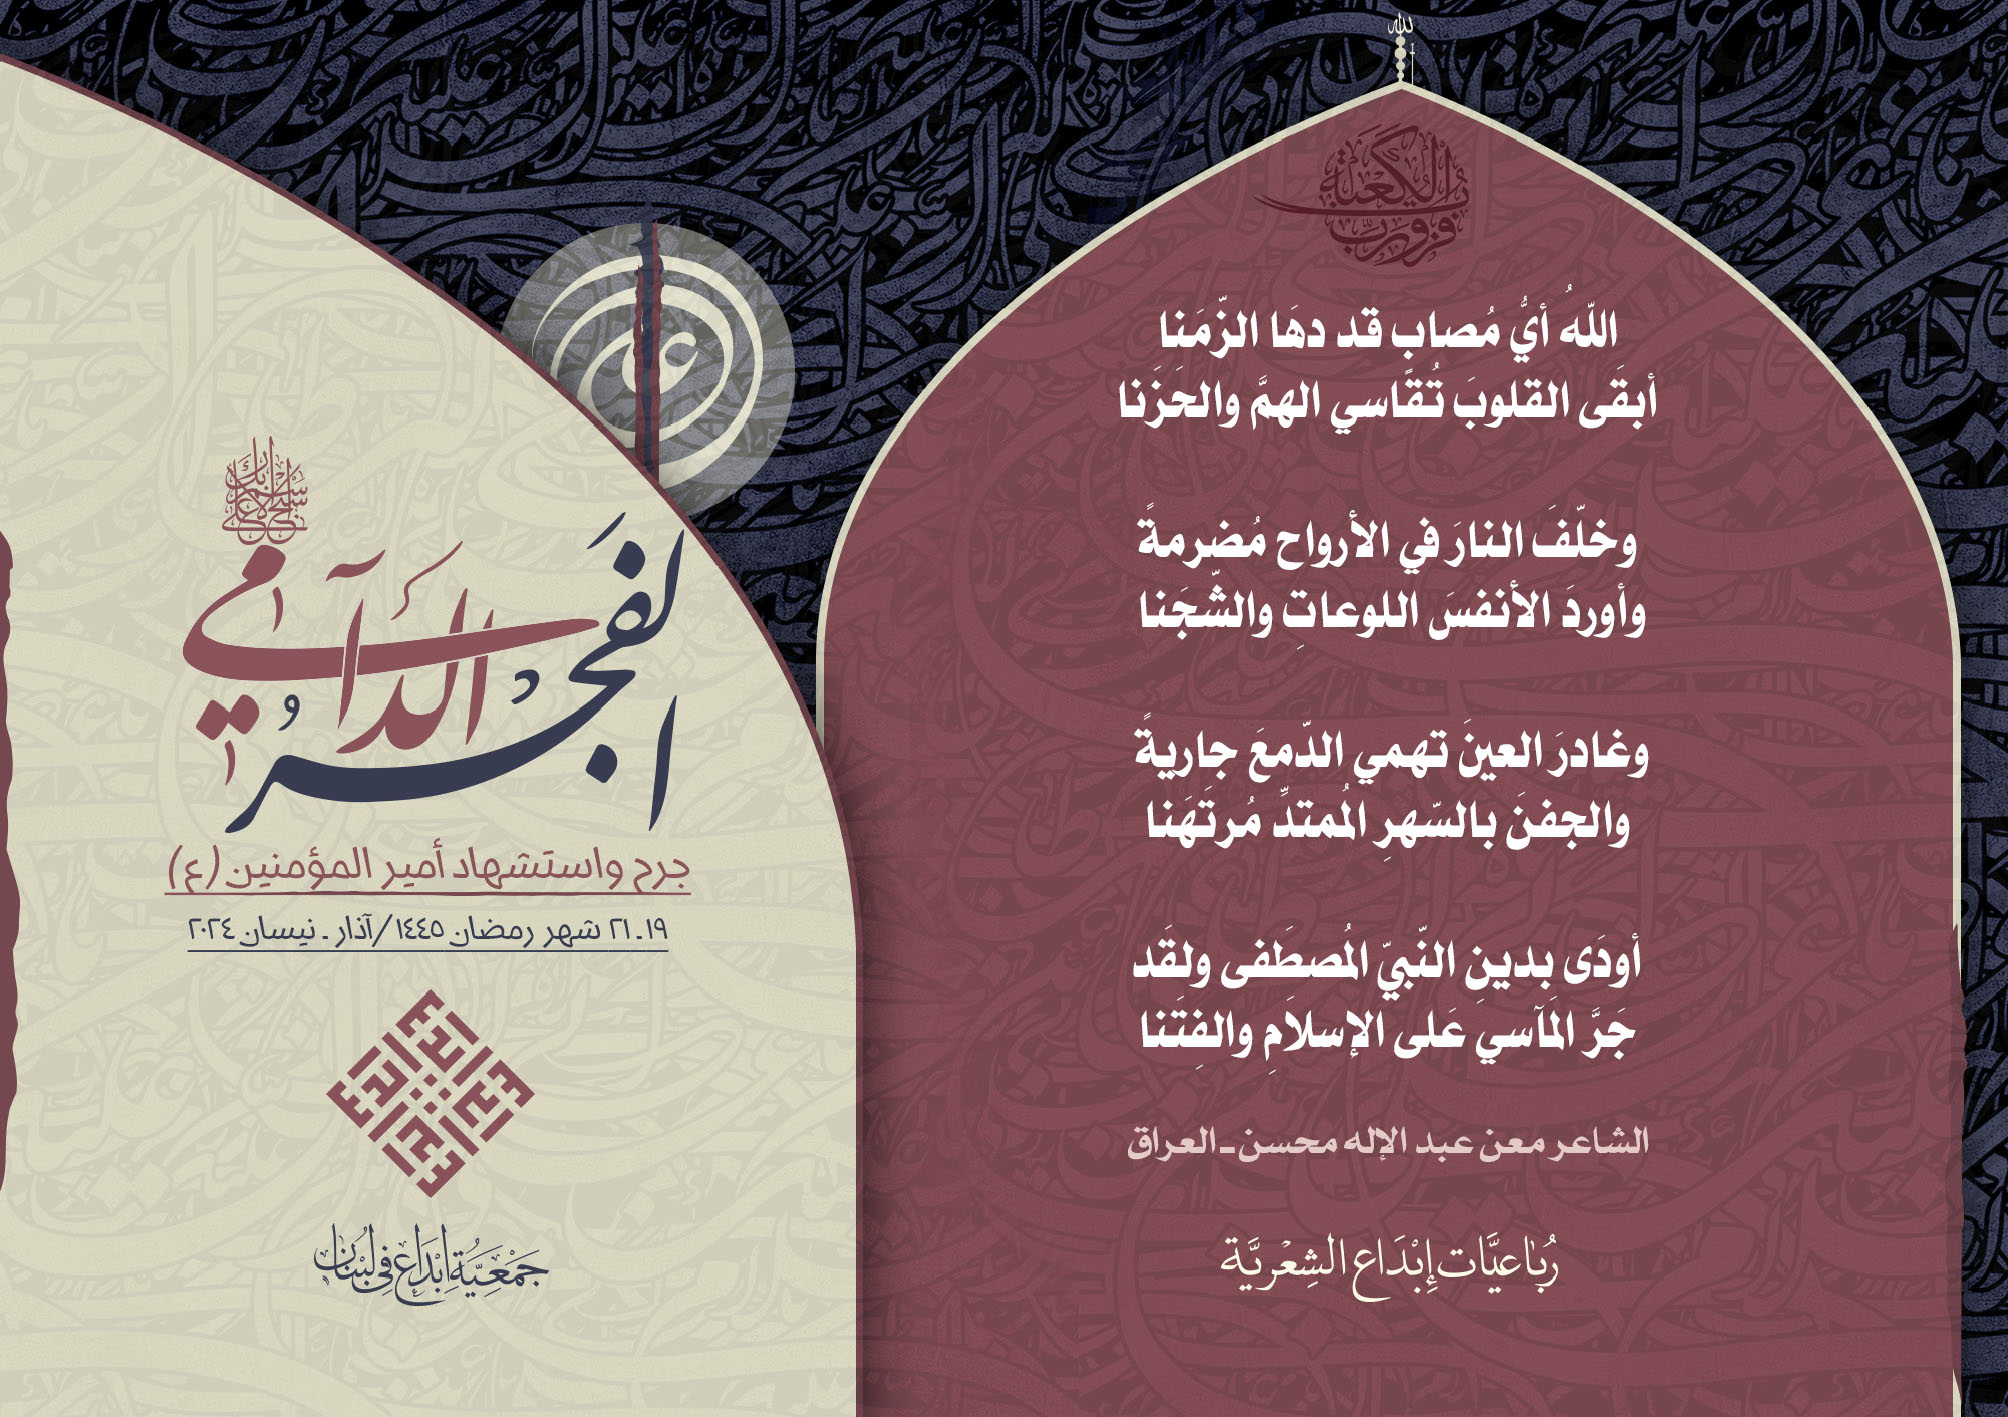 الله
فزت ورب الكعبة
اللّهُ أيُّ مُصابٍ قد دهَا الزّمَنا
أبقَى القلوبَ تُقاسي الهمَّ والحَزَنا
وخلّفَ النارَ في الأرواح مُضرمةً
وأوردَ الأنفسَ اللوعاتِ والشّجَنا
وغادرَ العينَ تهمي الدّمعَ جاريةً
والجفنَ بالسّهرِ المُمتدِّ مُرتَهَنا
أودَى بدينِ النّبيّ المُصطَفى ولقَد
جَرَّ المَآسي عَلى الإسلاَمِ والفِتَنا
الشاعر معن عبد الإله محسن ـ العراق
رُبَاعيَّات إِبْدَاع الشِعريَّة
علي
سبح اسم ربك الأعلى
الفَجرُ الدَّامي
جرح واستشهاد أمير المؤمنين (ع)
١٩ ـ ٢١ شهر رمضان ١٤٤٥ / آذار ـ نيسان ٢٠٢٤
جَمْعِيَّة إِبْدَاع في لبْنَان